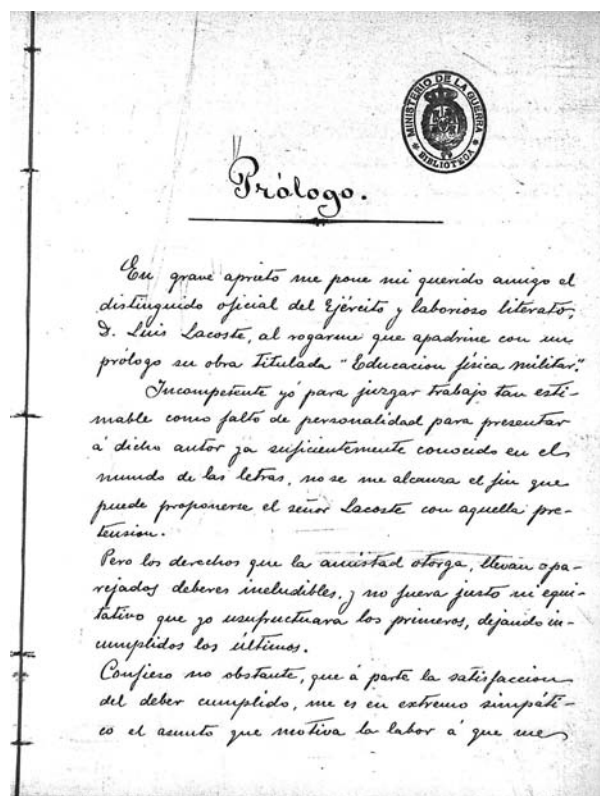 MINISTERIO DE LA GUERRA
* BIBLIOTECA *
Prólogo.
En grave aprieto me pone mi querido amigo el
distinguido oficial del Ejército y laborioso literato,
D. Luis Lacoste, al rogarme que apadrine con un
prólogo su obra titulada "Educacion física militar."
Incompetente yó para juzgar trabajo tan esti-
mable como falto de personalidad para presentar
á dicho autor ya suficientemente conocido en el
mundo de las letras, no se me alcanza el fin que
puede proponerse el señor Lacoste con aquella pre-
tension.
Pero los derechos que la amistad otorga, llevan apa-
rejados deberes ineludibles, y no fuera justo ni equi-
tativo que yo usufructuara los primeros, dejando in-
cumplidos los últimos.
Confieso no obstante, que á parte la satisfaccion
del deber cumplido, me es en extremo simpáti-
co el asunto que motiva la labor á que me